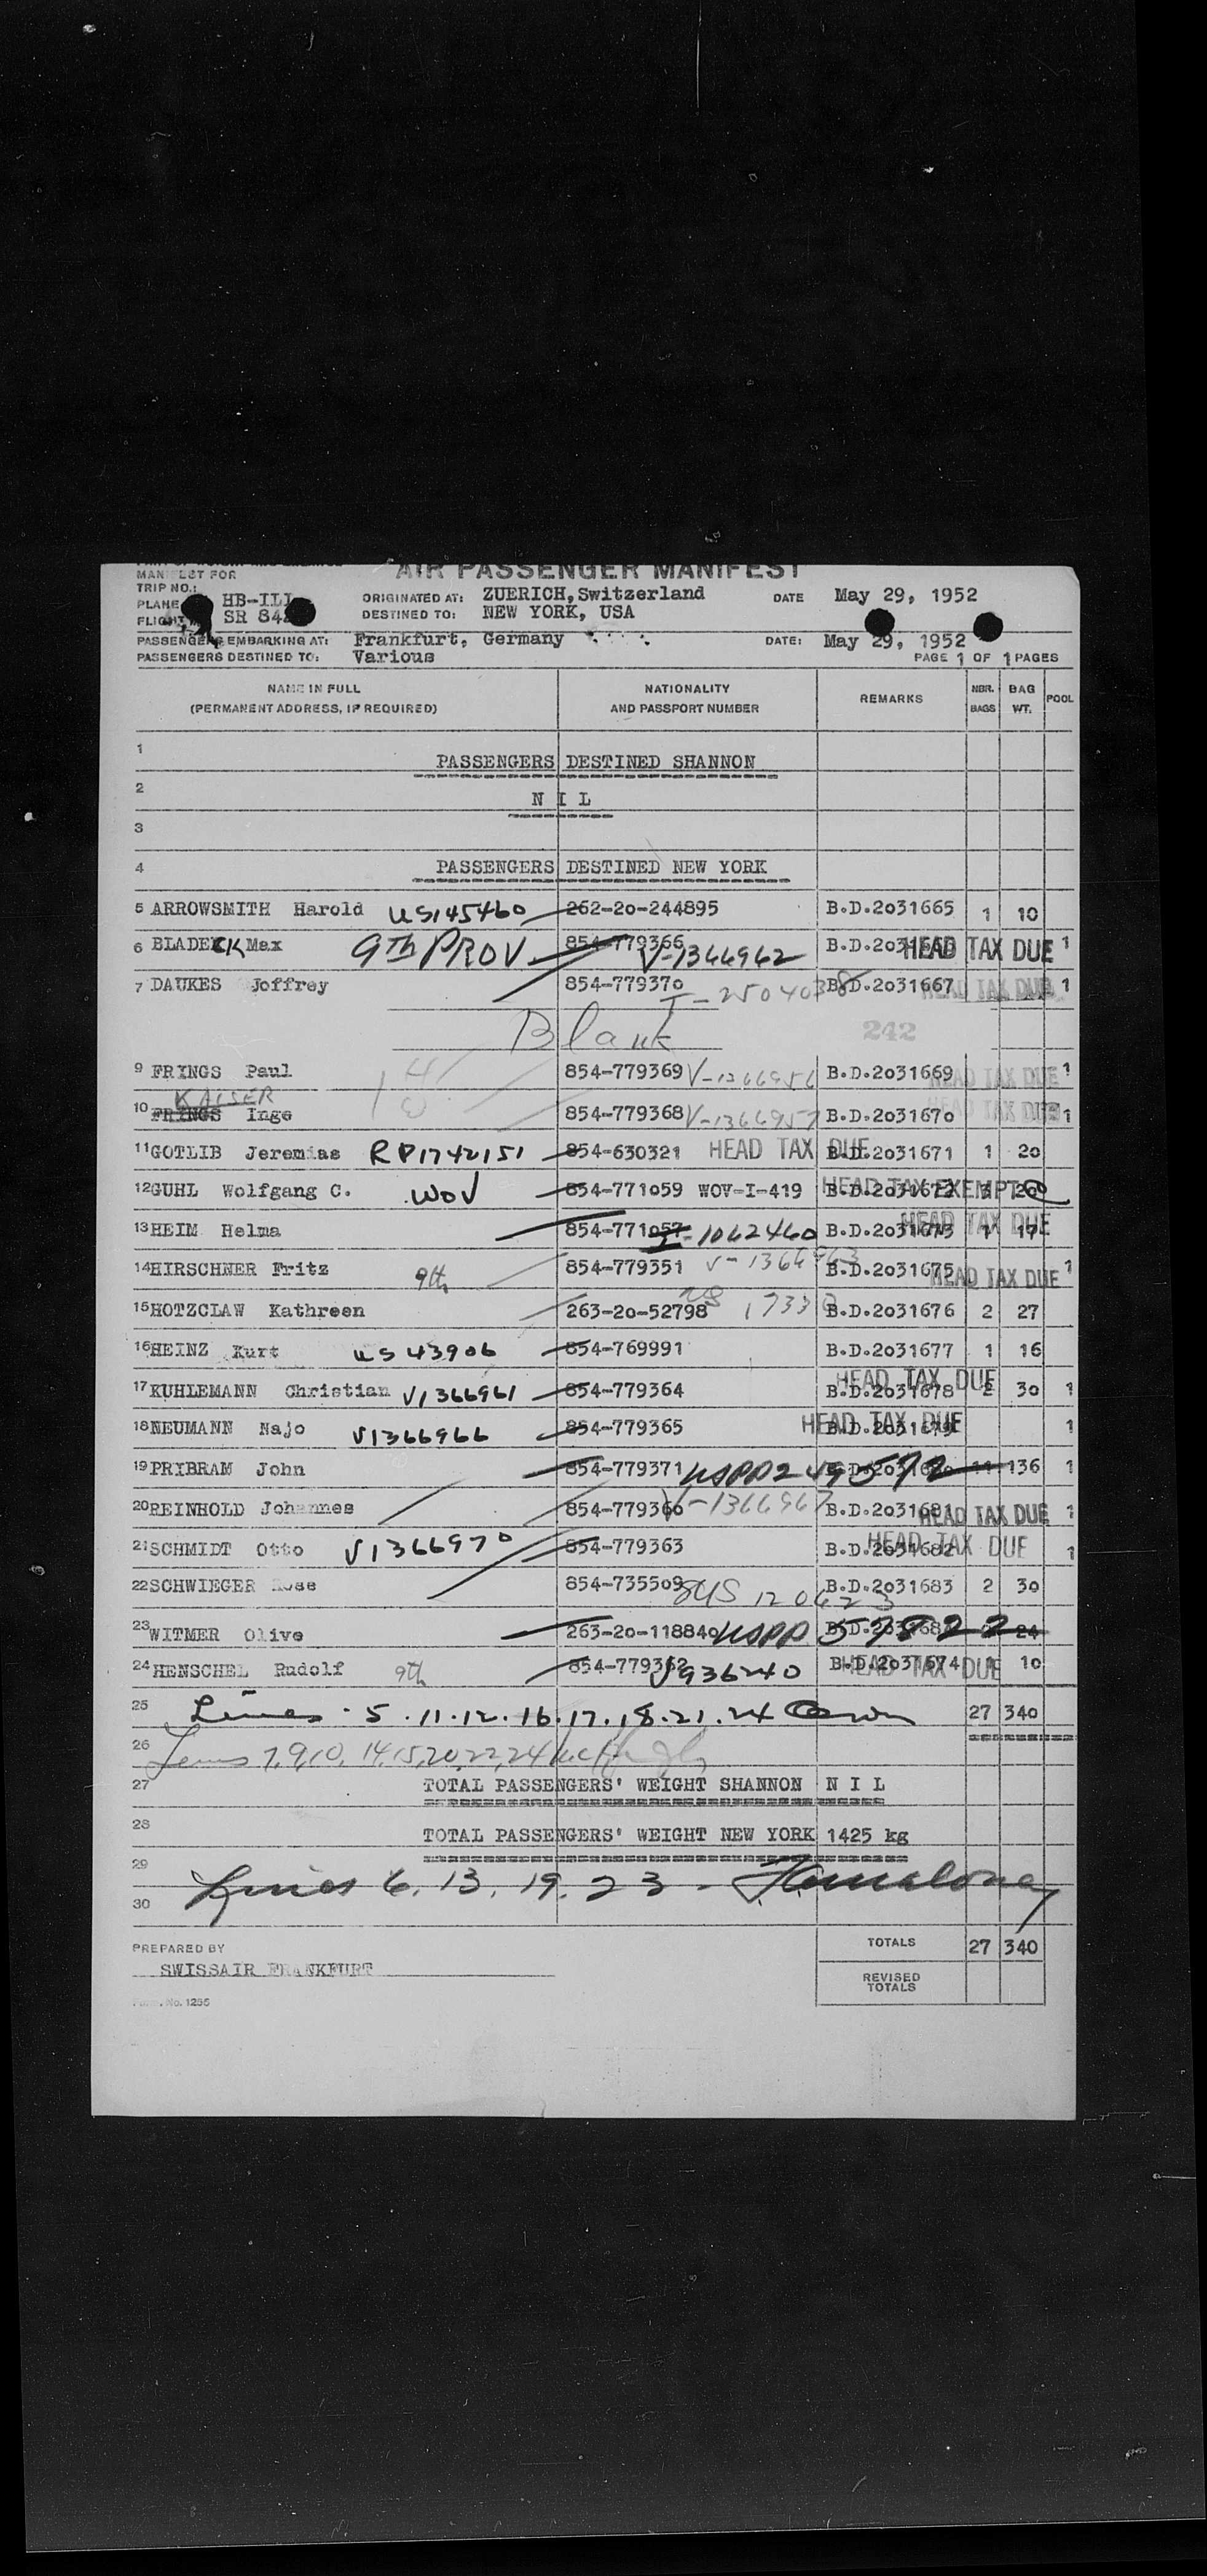 MANIFEST FOR AIR PASSENGER MANIFEST
TRIP NO.:
PLANE HB-ILI ORIGINATED AT: ZUERICH, Switzerland DATE May 29, 1952
FLIGHT SR 84 DESTINED TO: NEW YORK, USA
PASSENGERS EMBARKING AT: Frankfurt, Germany DATE: May 29, 1952
PASSENGERS DESTINED TO: Various PAGE 1 OF 1 PAGES
NAME IN FULL NATIONALITY REMARKS NBR. BAG POOL
(PERMANENT ADDRESS, IF REQUIRED) AND PASSPORT NUMBER BAGS WT.
1 PASSENGERS DESTINED SHANNON
2 N I L
3
4 PASSENGERS DESTINED NEW YORK
5 ARROWSMITH Harold US145460 262-20-244895 B.D.2031665 1 10
6 BLADECK Max 9TH PROV 854-779366 V-1366962 B.D. HEAD TAX DUE 1
7 DAUKES Joffrey 854-779370 I-2504038 B.D.2031667 HEAD TAX DUE 1
Blank 242
9 FRINGS Paul 854-779369 V-1366956 B.D.2031669 HEAD TAX DUE 1
KAISER
10 FRINGS Inge 854-779368 V-1366957 B.D.2031670 HEAD TAX DUE 1
11 GOTLIB Jeremias RP1742151 854-630321 HEAD TAX DUE B.D.2031671 1 20
12 GUHL Wolfgang C. WOV 854-771059 WOV-I-419 B.D.2031672 HEAD TAX EXEMPT 20
13 HEIM Helma 854-771057 I-1062460 B.D.2031673 HEAD TAX DUE 1 17
14 HIRSCHNER Fritz 9th 854-779351 V-1366963 B.D.2031675 HEAD TAX DUE 1
15 HOTZCLAW Kathreen 263-20-52798 US B.D.2031676 2 27
16 HEINZ Kurt US 43906 854-769991 B.D.2031677 1 16
17 KUHLEMANN Christian V1366961 854-779364 B.D.2031678 HEAD TAX DUE 2 30 1
18 NEUMANN Najo V1366966 854-779365 B.D.2031679 HEAD TAX DUE 1
19 PRIBRAM John 854-779371 USPP249592 B.D.2031680 11 136 1
20 REINHOLD Johannes 854-779360 V-1366967 B.D.2031681 HEAD TAX DUE 1
21 SCHMIDT Otto V1366970 854-779363 B.D.2031682 HEAD TAX DUE 1
22 SCHWIEGER Rose 854-735509 120623 B.D.2031683 2 30
23 WITMER Olive 263-20-118840 USPP 57822 B.D. 24
24 HENSCHEL Rudolf 9th 854-779362 V936240 B.D.2031674 HEAD TAX DUE 10
25 Lines 5.11.12.16.17.18.21.24 27 340
26 7,9,10, 14,15,20,22,24
27 TOTAL PASSENGERS' WEIGHT SHANNON N I L
28 TOTAL PASSENGERS' WEIGHT NEW YORK 1425 kg
29 Lines 6. 13. 19. 23 -
30
PREPARED BY TOTALS 27 340
SWISSAIR FRANKFURT REVISED
TOTALS
Form. No. 1255